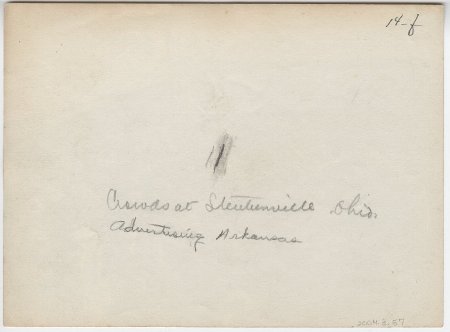 14-f
Crowds at Steubenville Ohio.
Advertising Arkansas
2004.3.57